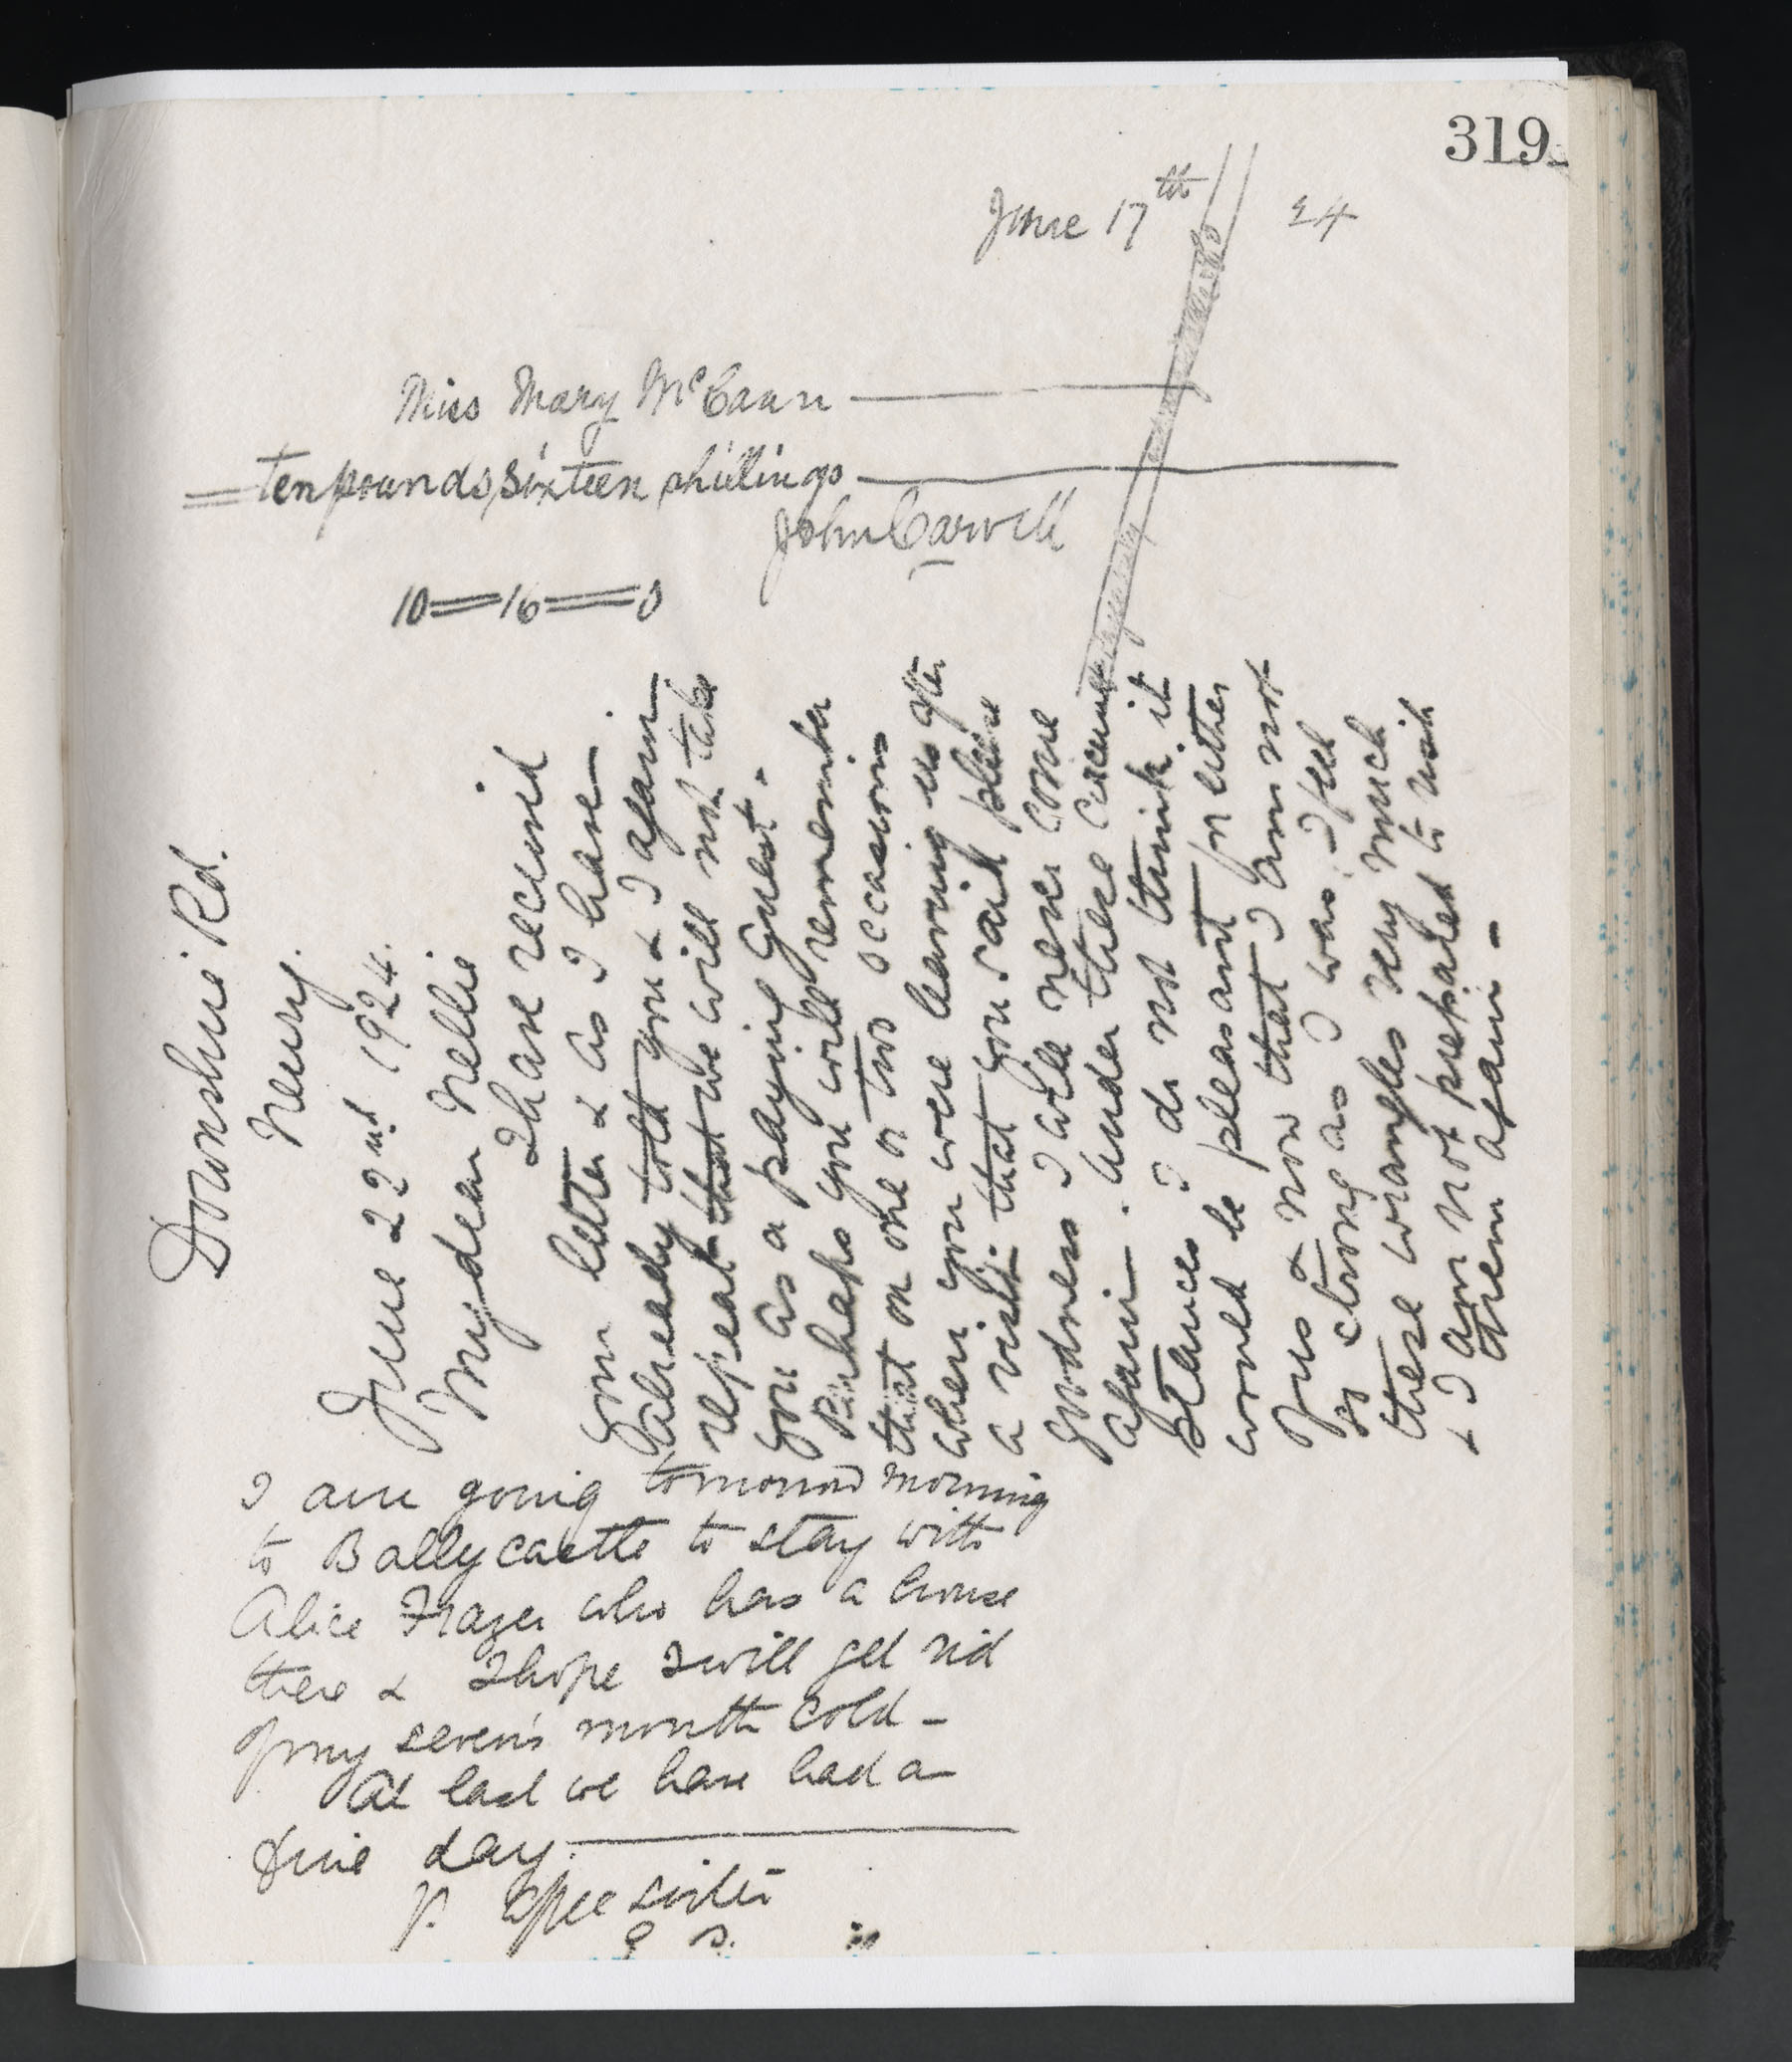 319
June 17th 24
Miss Mary McCann
ten pounds, sixteen shillings
John Carvill
10 = 16 = 0
Downshire Rd.
Newry.
June 22nd 1924.
My dear Nellie
I have received
your letter & as I have
already told you & I again
repeat that we will not take
you as a paying Guest.
Perhaps you will remember
that on one or two occasions
when you were leaving us after
a visit. that you said please
goodness I will never come
again. Under these circum
stances I do not think it
would be pleasant for either
of us & now that I am not
so strong as I was. I feel
these wrangles very much
& I am not prepared to risk
them again -
I am going tomorrow morning
to Ballycastle to stay with
Alice Frazer who has a house
there & I hope I will get rid
of my seven's month cold -
At last we have had a
fine day.
yr. affec sister